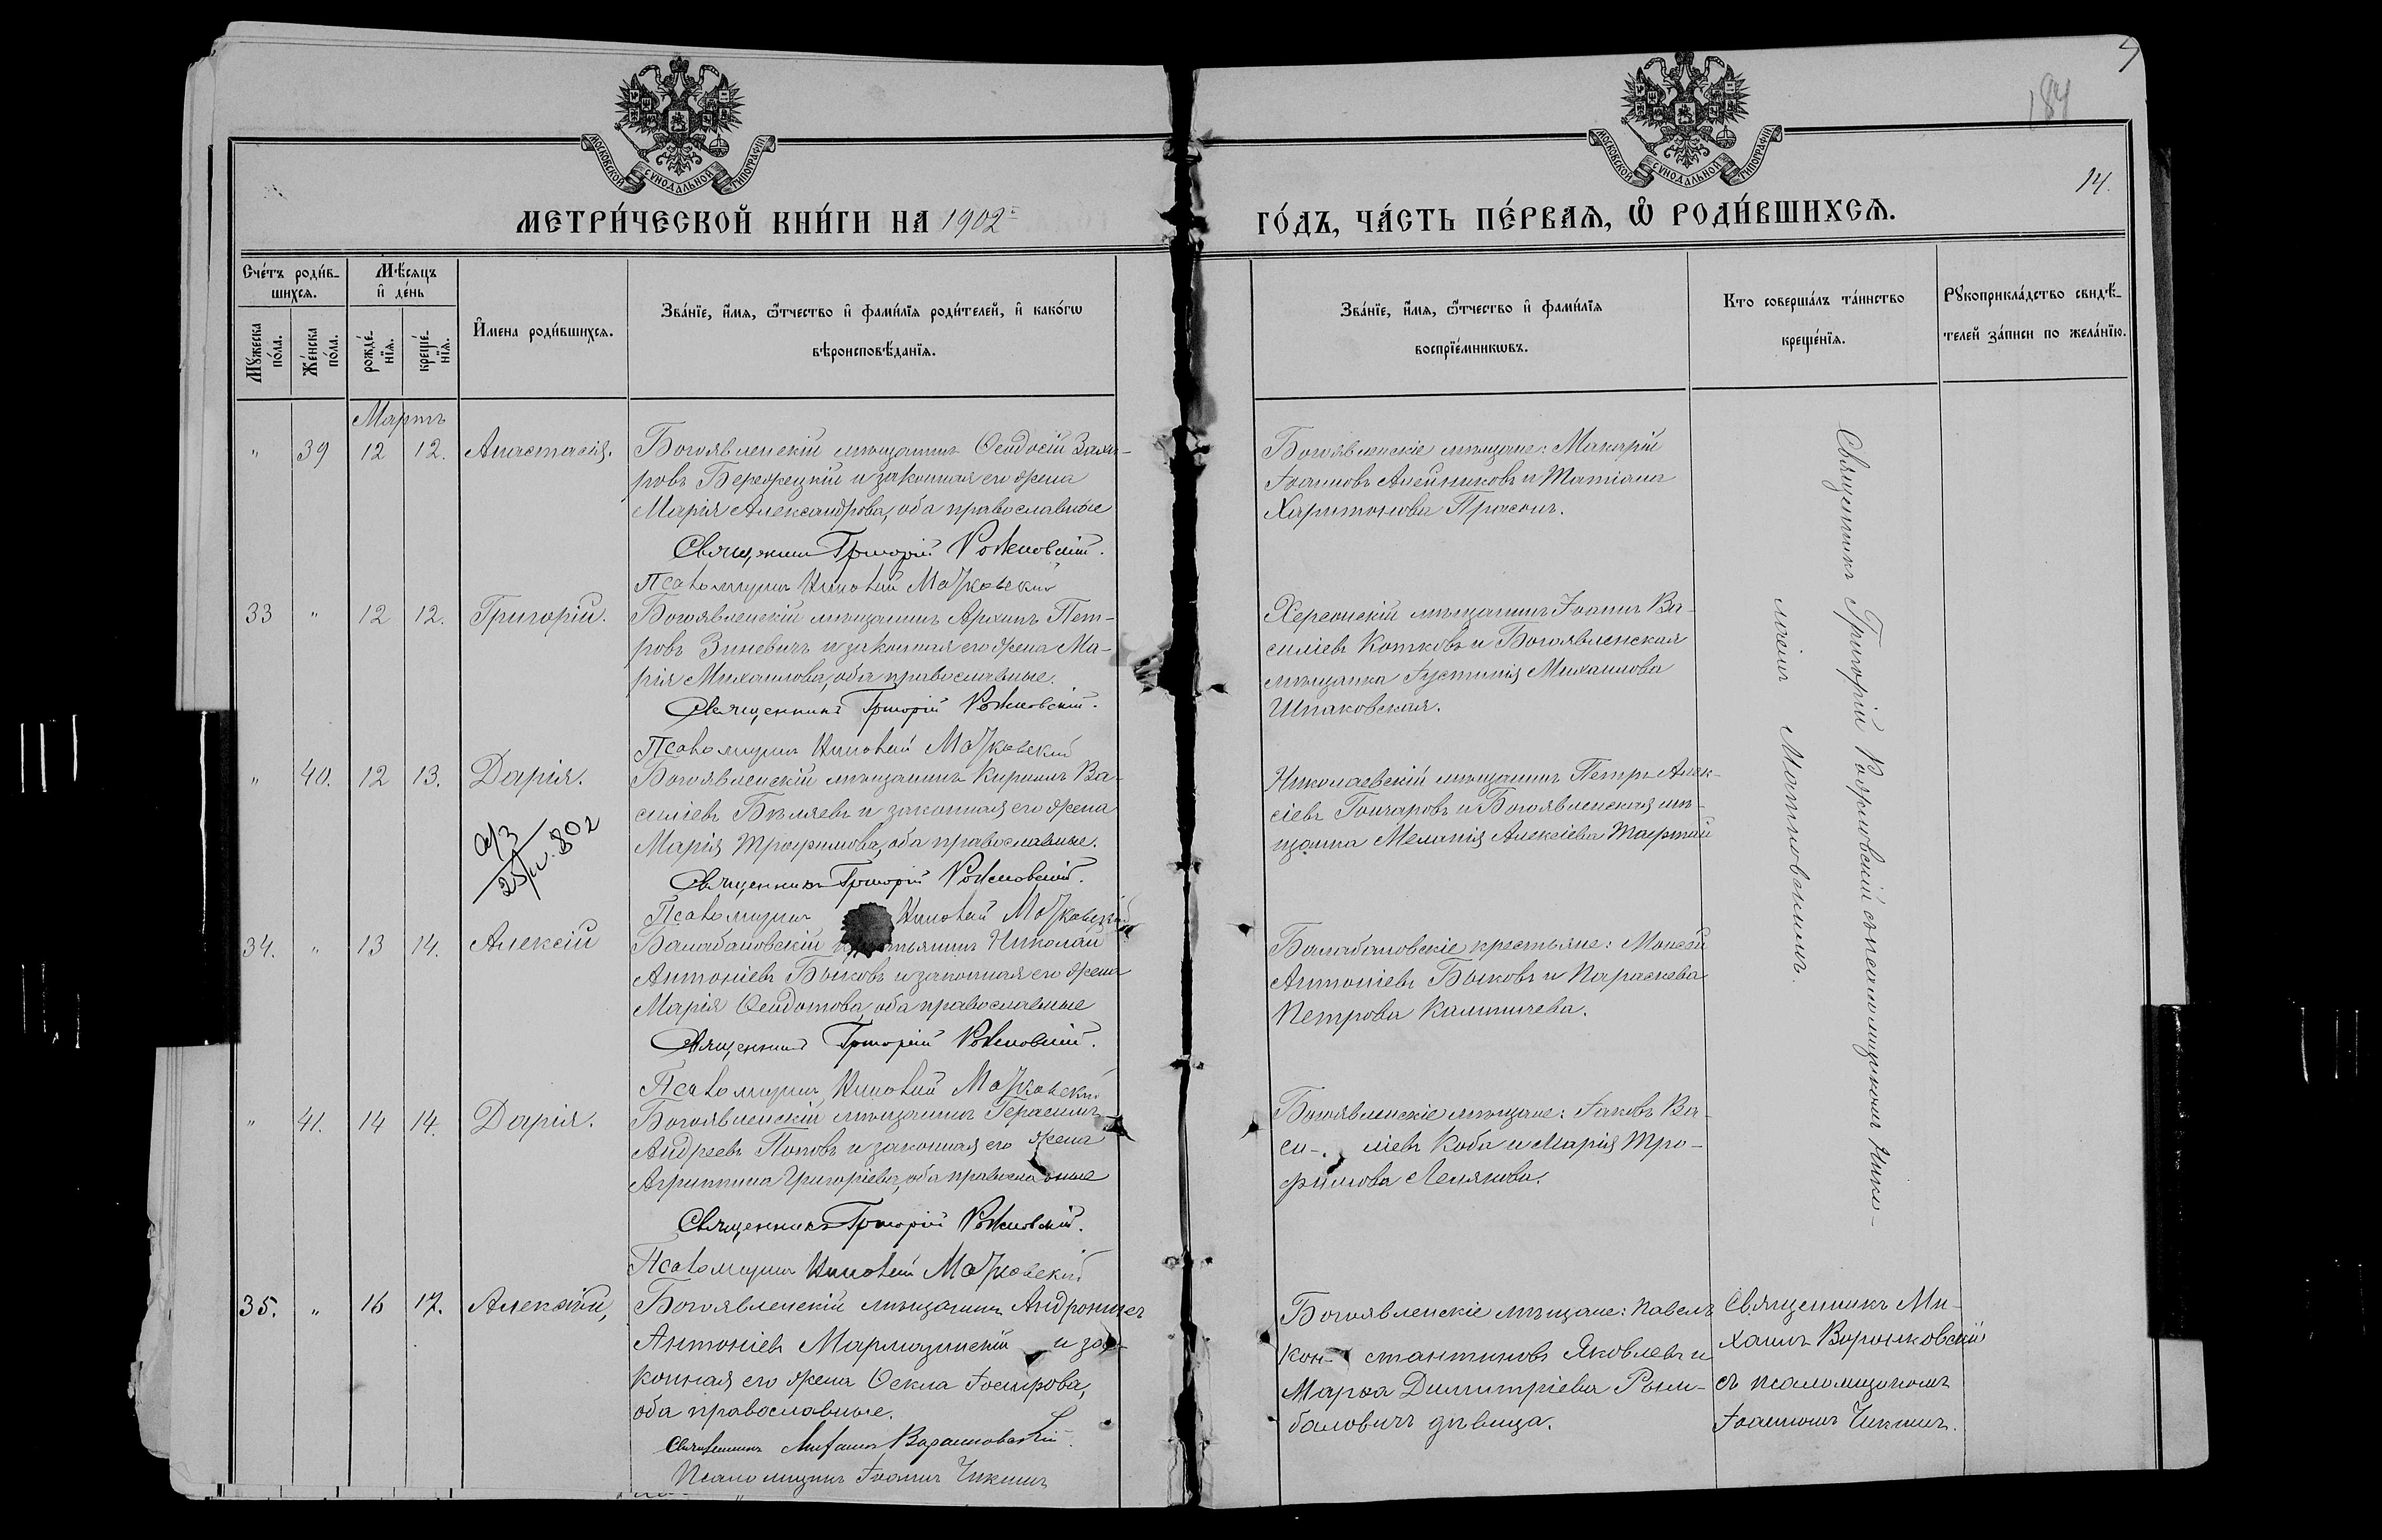 184
14.
МОСКОВСКОЙ СѴНОДАЛЬНОЙ ТИПОГРАФІИ
МОСКОВСКОЙ СѴНОДАЛЬНОЙ ТИПОГРАФІИ
МЕТРИ́ЧЕСКОЙ КНИ́ГИ НА 1902
ГО́ДЪ, ЧА́СТЬ ПЕ́РВАЯ, Ѡ҆ РОДИ́ВШИХСЯ.
Сче́тъ роди́в-
шихся.
Мꙋ́жеска по́ла.
Же́нска по́ла.
Мѣ́сяцъ
и҆ де́нь
рожде́-
нїя.
креще́-
нїя.
И҆мена роди́вшихся.
Зва́нїе, и҆́мя, ѻ҆́тчество и҆ фами́лїя роди́телей, и҆ како́гѡ
вѣроисповѣ́данїя.
Зва́нїе, и҆́мя, ѻ҆́тчество и҆ фами́лїя
воспрїе́мникѡвъ.
Кто совершáлъ та́инство
креще́нїя.
Рꙋкоприкла́дство свидѣ́-
телей за́писи по жела́нїю.
Мартъ
" 39 12 12. Анастасія.
Богоявленскій мѣщанинъ Ѳеодосій Заха-
ровъ Бережецкій и законная его жена
Марія Александрова, оба православные
Священникъ Григорій Рожновскій.
Псаломщикъ
Богоявленскіе мѣщане: Макарій
Іоанновъ Алейниковъ и Татіана
Харитонова
33 " 12 12. Григорій.
Богоявленскій мѣщанинъ Архипъ Пет-
ровъ Зиневичъ и законная его жена Ма-
рія Михаилова, оба православные.
Священникъ Григорій Рожновскій.
Псаломщикъ
Херсонскій мѣщанинъ Іоаннъ Ва-
силіевъ Котковъ и Богоявленская
мѣщанка Іустинія Михаилова
Шпаковская.
" 40. 12 13. Дарія.
Богоявленскій мѣщанинъ Кириллъ Ва-
силіевъ Бѣляевъ и законная его жена
Марія Трофимова, оба православные.
Священникъ Григорій Рожновскій.
Псаломщикъ
Николаевскій мѣщанинъ Петръ Алек-
сіевъ Гончаровъ и Богоявленская мѣ-
щанка Меланія Алексіева
34. " 13 14. Алексій
Балабановскій крестьянинъ Николай
Антоніевъ Быковъ и законная его жена
Марія Ѳеодотова, оба православные
Священникъ Григорій Рожновскій.
Псаломщикъ
Балабановскіе крестьяне: Моисей
Антоніевъ Быковъ и Параскева
Петрова Калиничева.
" 41. 14 14. Дарія.
Богоявленскій мѣщанинъ Герасимъ
Андреевъ Поповъ и законная его жена
Агриппина Григоріева, оба православные
Священникъ Григорій Рожновскій.
Псаломщикъ
Богоявленскіе мѣщане: Іаковъ Ва-
си-ліевъ Коба и Марія Тро-
фимова
Священникъ Григорій Рожновскій съ псаломщикомъ Нико-
лаемъ
35. " 16 17. Алексій,
Богоявленскій мѣщанинъ Андроникъ
Антоніевъ Мармазинскій и за-
конная его жена Ѳекла
оба православные.
Священникъ Михаилъ Воронковскій.
Псаломщикъ Іоаннъ Чикинъ
Богоявленскіе мѣщане: Павелъ
Кон-стантиновъ Яковлевъ и
Марѳа Димитріева Роми-
баловичъ дѣвица.
Священникъ Ми-
хаилъ Воронковскій
съ псаломщикомъ
Іоанномъ Чикинъ.